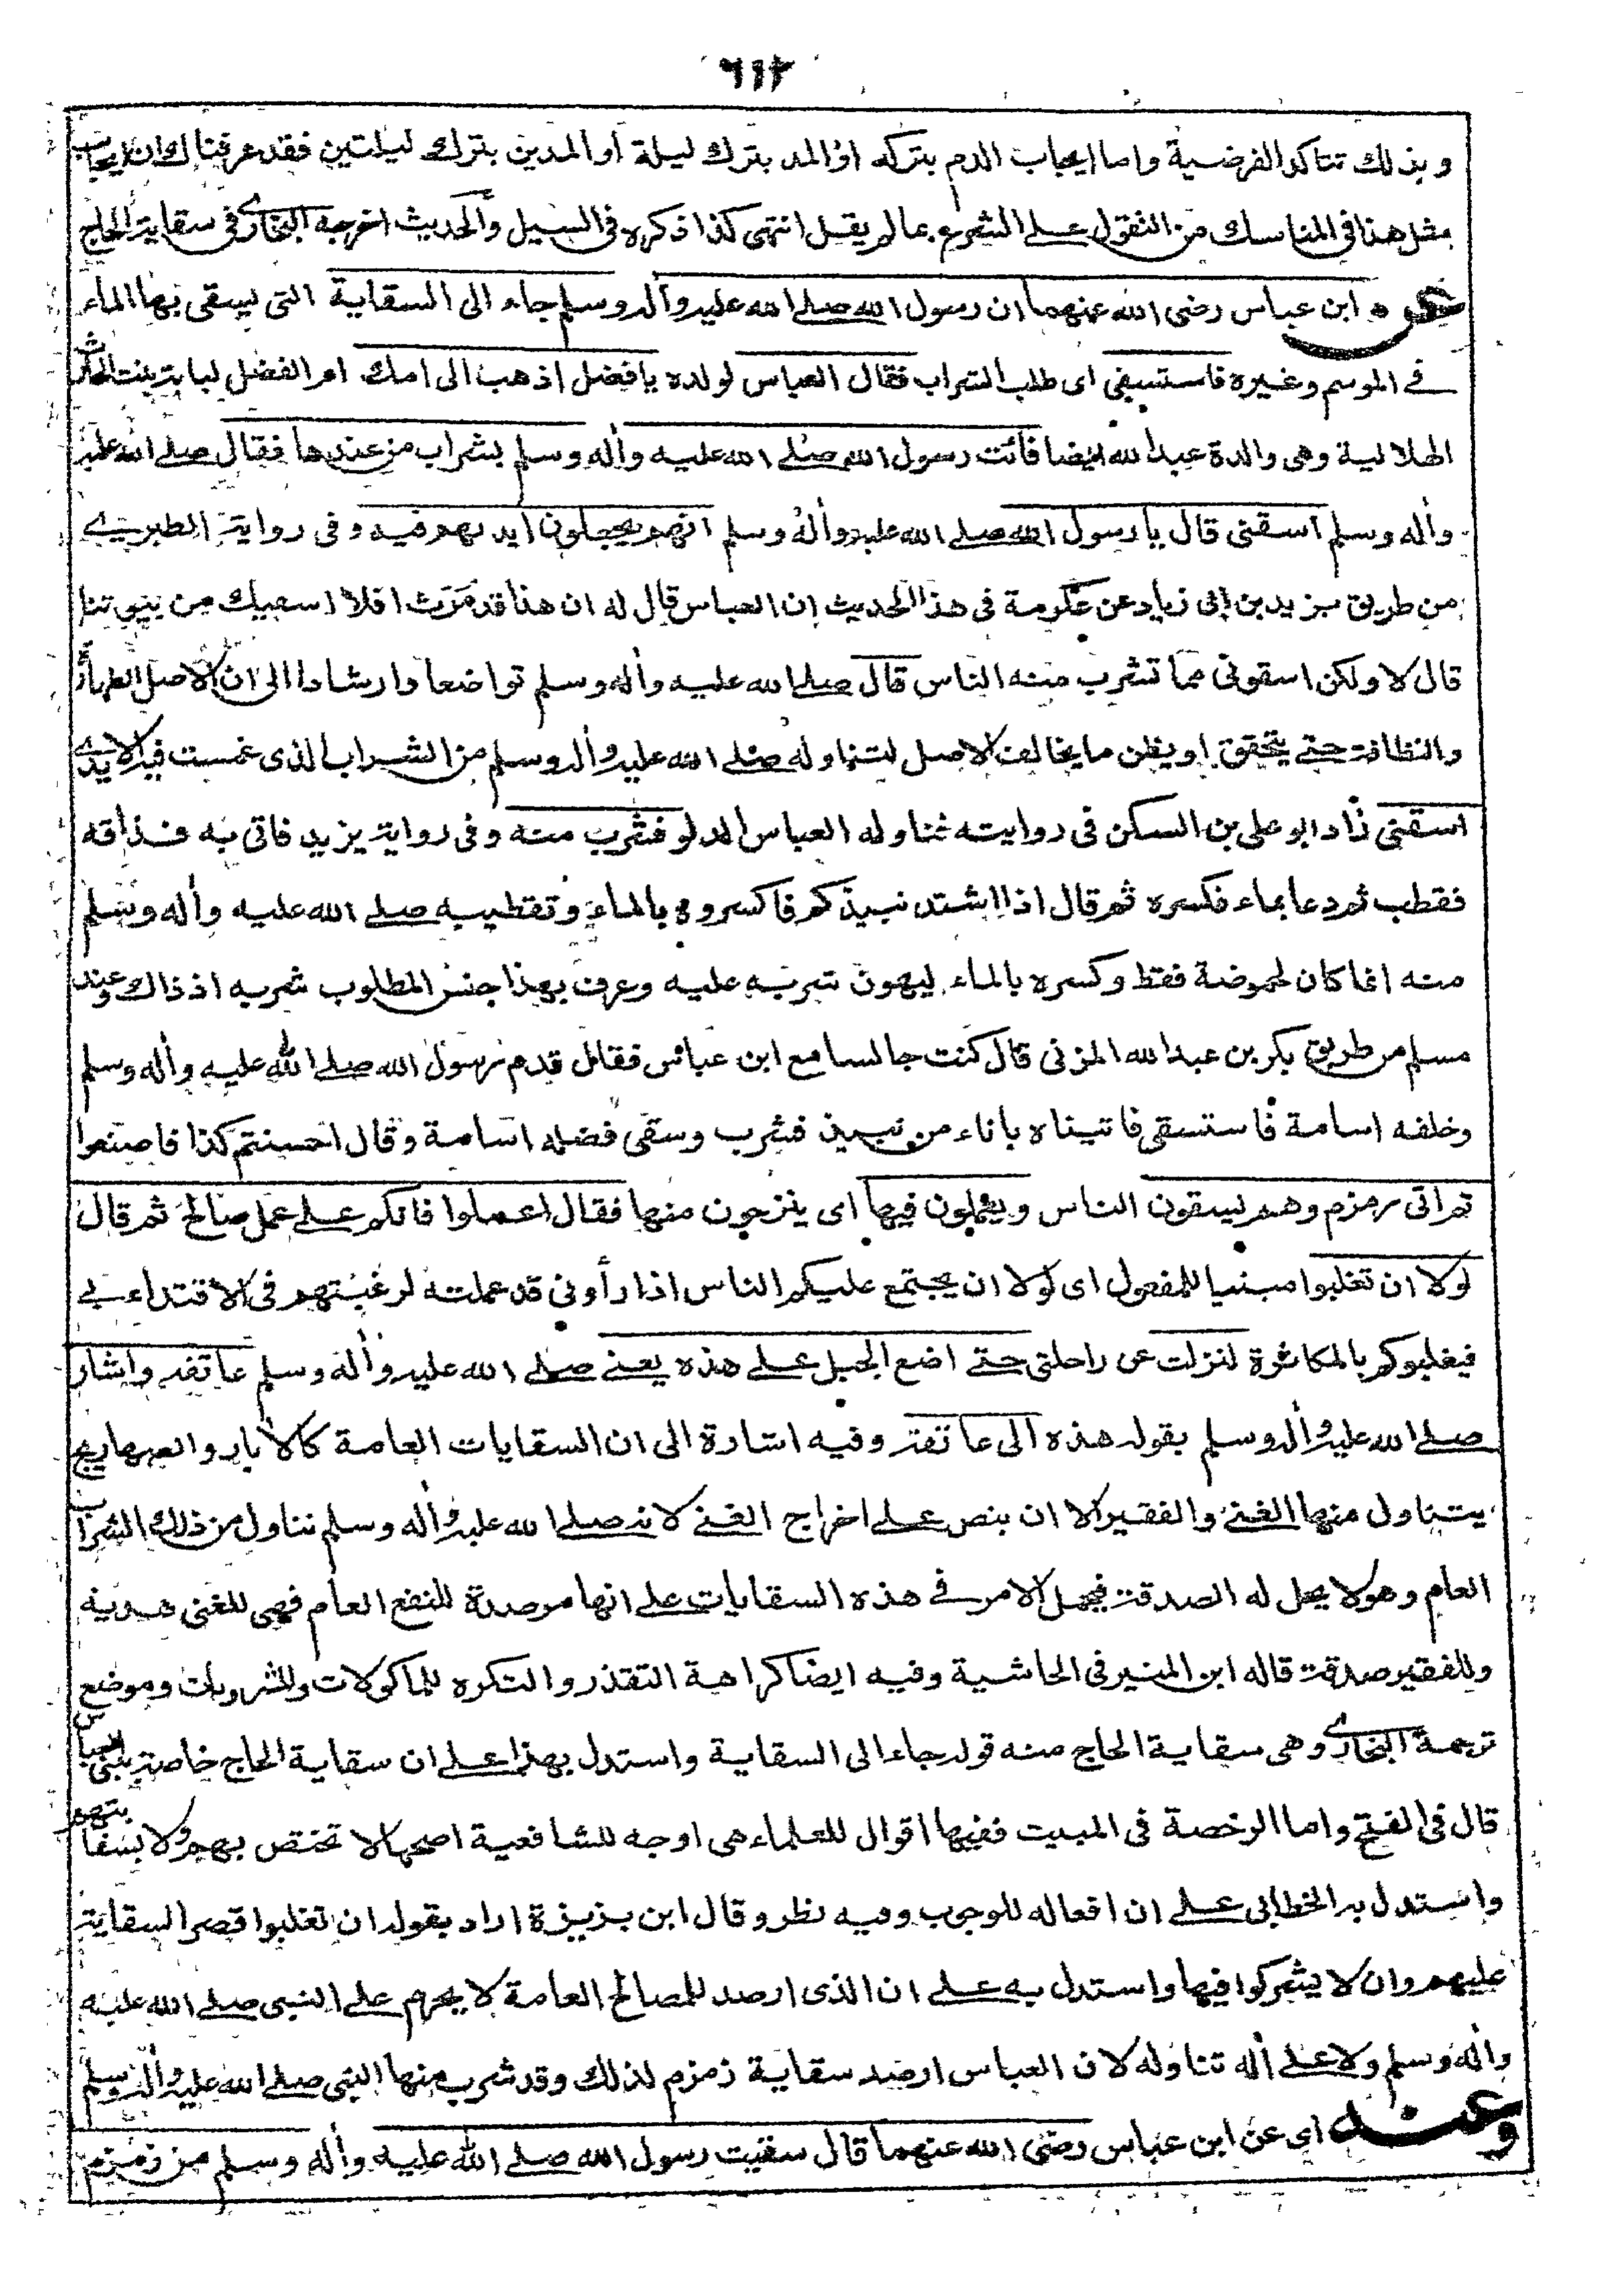 ٦١٢
وبذلك تتاكد الفرضية واما ايجاب الدم بتركه او المد بترك ليلة او المدين بترك ليلتين فقد عرفناك ان ايجاب
مثل هذا فى المناسك من التقول على الشرع بما لم يقل انتهى كذا ذكره فى السيل والحديث اخرجه البخارى فى سقاية الحاج
عن ابن عباس رضى الله عنهما ان رسول الله صلى الله عليه وأله وسلم جاء الى السقاية التى يسقى بها الماء
فى الموسم وغيره فاستسقى اى طلب الشراب فقال العباس لولده يا فضل اذهب الى امك ام الفضل لبابة بنت الحارث
الهلالية وهى والدة عبد الله ايضا فائت رسول الله صلى الله عليه وأله وسلم بشراب من عندها فقال صلى الله عليه
وأله وسلم اسقنى قال يا رسول الله صلى الله عليه وأله وسلم انهم يجعلون ايديهم فيه وفى رواية الطبرى
من طريق يزيد بن ابى زياد عن عكرمة فى هذا الحديث ان العباس قال له ان هذا قد مرث افلا اسقيك من بيوتنا
قال لا ولكن اسقونى مما تشرب منه الناس قال صلى الله عليه وأله وسلم تواضعا وارشادا الى ان الاصل الطهارة
والنظافة حتى يتحقق او يظن ما يخالف الاصل لتناوله صلى الله عليه وأله وسلم من الشراب الذى غمست فيه الايدى
اسقنى زاد ابو على بن السكن فى روايته فناوله العباس الدلو فشرب منه وفى رواية يزيد فاتى به فذاقه
فقطب ثم دعا بماء فكسره ثم قال اذا اشتد نبيذكم فاكسروه بالماء وتقطيبه صلى الله عليه وأله وسلم
منه انما كان لحموضة فقط وكسره بالماء ليهون شربه عليه وعرف بهذا جنس المطلوب شربه اذ ذاك وعند
مسلم من طريق بكر بن عبد الله المزنى قال كنت جالسا مع ابن عباس فقال قدم رسول الله صلى الله عليه وأله وسلم
وخلفه اسامة فاستسقى فاتيناه باناء من نبيذ فشرب وسقى فضله اسامة وقال احسنتم كذا فاصنعوا
ثم اتى زمزم وهم يسقون الناس ويعملون فيها اى ينزحون منها فقال اعملوا فانكم على عمل صالح ثم قال
لولا ان تغلبوا مبنيا للمفعول اى لولا ان يجتمع عليكم الناس اذا رأونى قد عملته لرغبتهم فى الاقتداء بى
فيغلبوكم بالمكاثرة لنزلت عن راحلتى حتى اضع الحبل على هذه يعنى صلى الله عليه وأله وسلم عاتقه واشار
صلى الله عليه وأله وسلم بقوله هذه الى عاتقه وفيه اشارة الى ان السقايات العامة كالابار والصهاريج
يتناول منها الغنى والفقير الا ان ينص على اخراج الغنى لانه صلى الله عليه وأله وسلم تناول من ذلك الشراب
العام وهو لا يحل له الصدقة فيحمل الامر فى هذه السقايات على انها موصدة للنفع العام فهى للغنى هدية
وللفقير صدقة قاله ابن المنير فى الحاشية وفيه ايضا كراهة التقذر والتكره للماكولات وللمشروبات وموضع
ترجمة البخارى وهى سقاية الحاج منه قوله جاء الى السقاية واستدل بهذا على ان سقاية الحاج خاصة ببنى العباس
قال فى الفتح واما الرخصة فى المبيت ففيها اقوال للعلماء هى اوجه للشافعية اصحها لا تختص بهم ولا بسقايتهم
واستدل به الخطابى على ان افعاله للوجوب وفيه نظر وقال ابن بزيزة اراد بقوله ان تغلبوا قصر السقاية
عليهم وان لا يشركوا فيها واستدل به على ان الذى ارصد للمصالح العامة لا يحرم على النبى صلى الله عليه
وأله وسلم ولا على أله تناوله لان العباس ارصد سقاية زمزم لذلك وقد شرب منها النبى صلى الله عليه وأله وسلم
وعنه اى عن ابن عباس رضى الله عنهما قال سقيت رسول الله صلى الله عليه وأله وسلم من زمزم